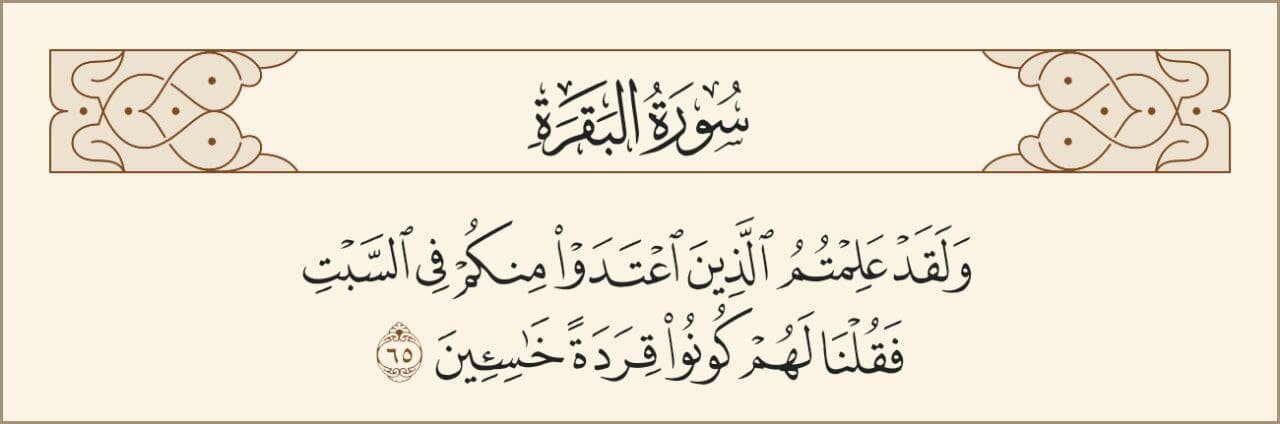 سُورَةُ البَقَرَةِ
وَلَقَدْ عَلِمْتُمُ ٱلَّذِينَ ٱعْتَدَوْا۟ مِنكُمْ فِى ٱلسَّبْتِ
فَقُلْنَا لَهُمْ كُونُوا۟ قِرَدَةً خَـٰسِـِٔينَ ٦٥